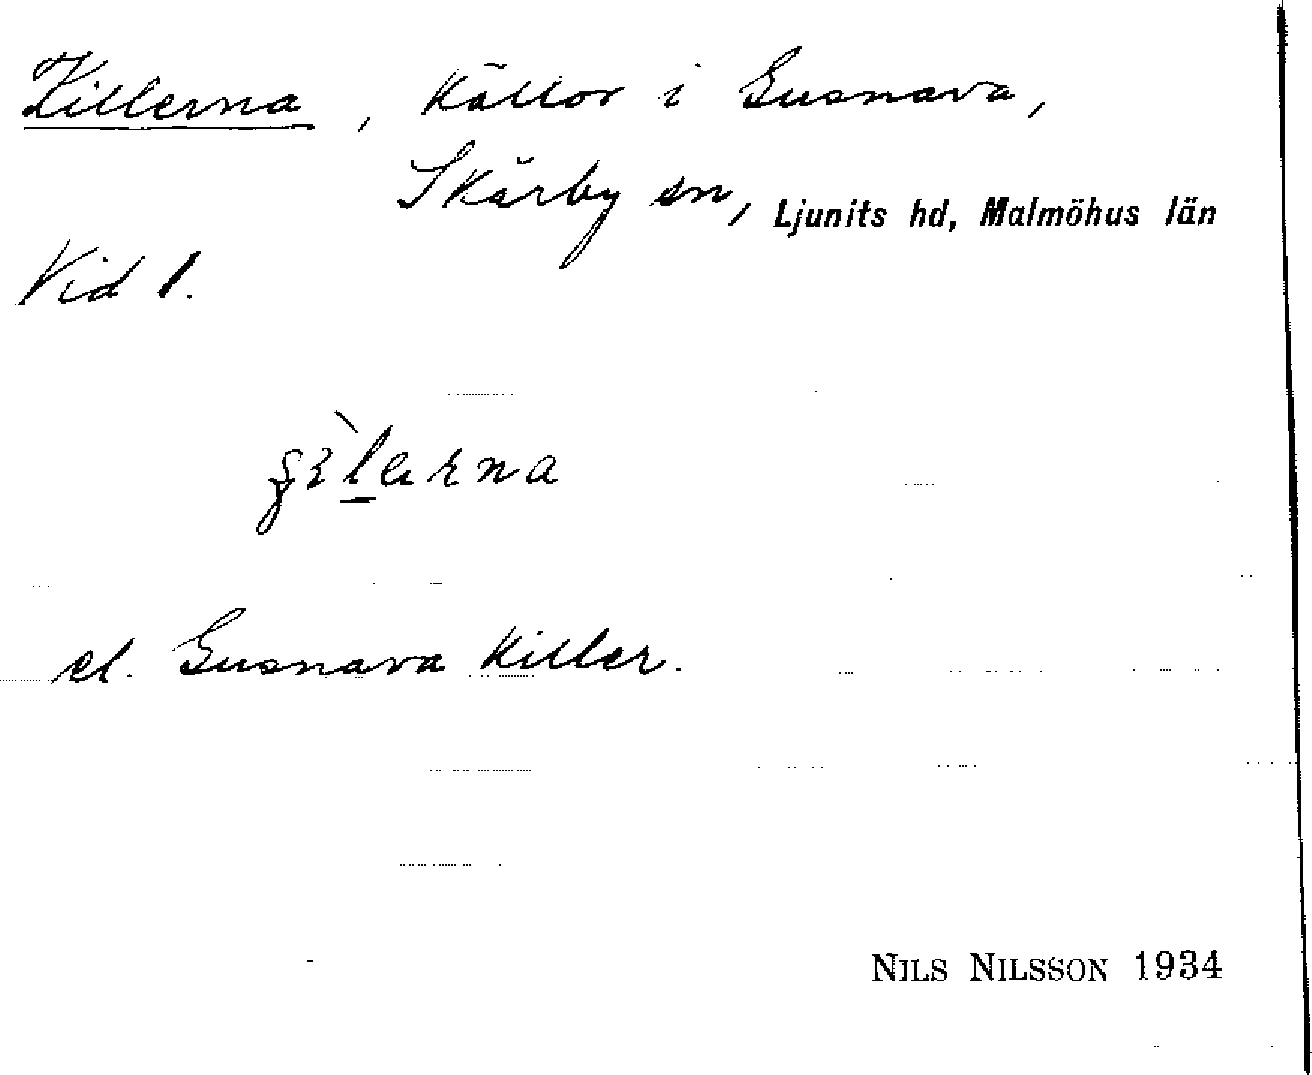 Killerna, källor i Gusnava,
Skårby sn, Ljunits hd, Malmöhus län
Vid 1.
el. Gusnava killer.
NILS NILSSON 1934